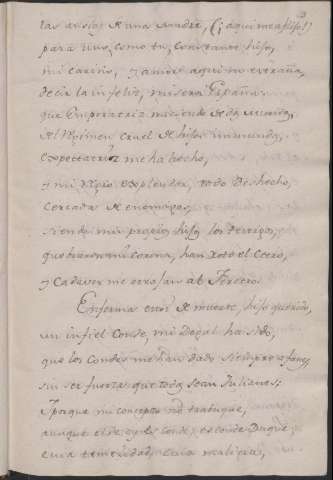 las ansias de una Madre, (¡aqui me aflijo!)
para uno, como tu, Constante hijo,
mi cariño, y amor aqui no extraña,
decia la infeliz, misera España:
que Emperatriz me
el Regimen cruel de hijos
expectatriz me ha hecho,
y mi Regio explendor, todo deshecho,
Cercada de enemigos,
siendo mis propios hijos los
que mi Corona, han roto el Cetro,
y Cadaver me arrojan al Feretro.
Enferma estoi de muerte, hijo querido,
un infiel Conde, mi Dogal ha sido,
que los Condes me han dado siempre afanes,
sin ser fuerza que todos sean Julianes;
Porque mi concepto no trabuque,
aunque el de oy es Conde, es Conde Duque,
cuia temeridad, cuia malicia,